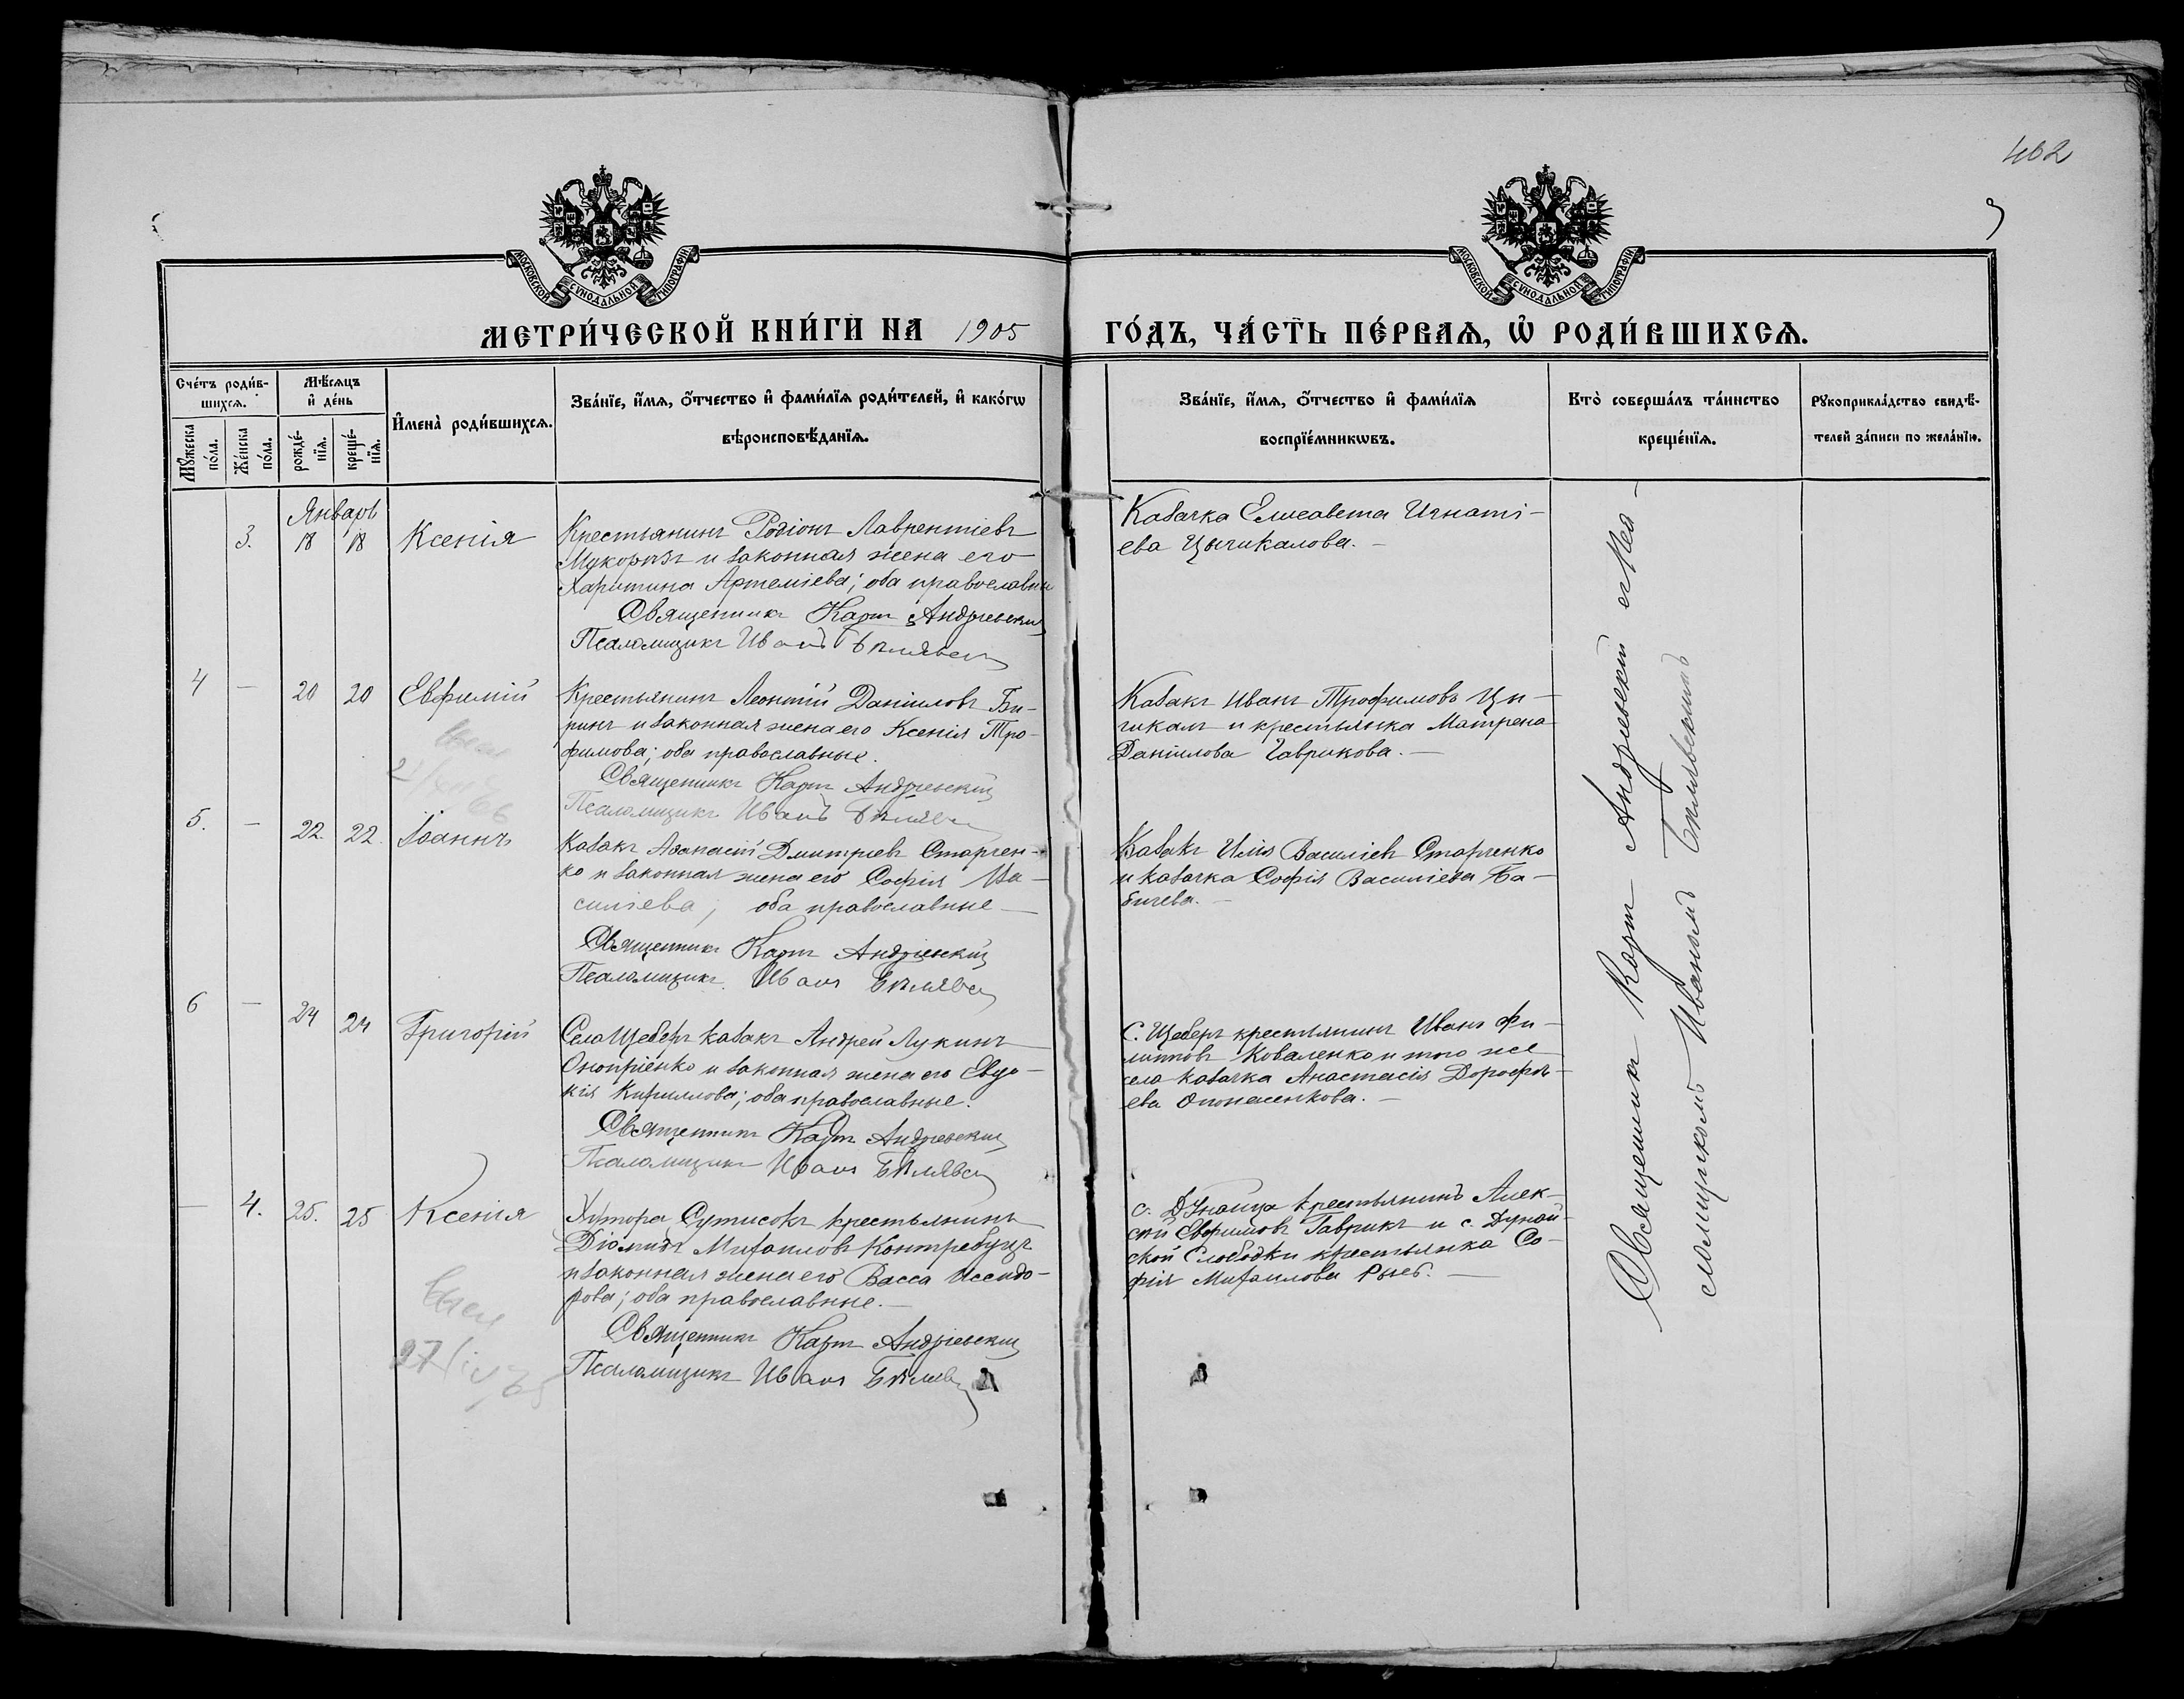 462
МОСКОВСКОЙ СѴНОДАЛЬНОЙ ТИПОГРАФІИ
МОСКОВСКОЙ СѴНОДАЛЬНОЙ ТИПОГРАФІИ
МЕТРИ́ЧЕСКОЙ КНИ́ГИ НА 1905 ГО́ДЪ, ЧА́СТЬ ПЕ́РВАѦ, Ѡ҆ РОДИ́ВШИХСѦ.
Сче́тъ роди́в-
шихсѧ.
Мꙋ́жеска
по́ла.
Же́нска
по́ла.
Мѣ́сѧцъ
и҆ де́нь
рожде́-
нїѧ.
креще́-
нїѧ.
И҆мена̀ роди́вшихсѧ.
Зва́нїе, и҆́мѧ, ѻ҆́тчество и҆ фами́лїѧ роди́телей, и҆ како́гѡ
вѣроисповѣ́данїѧ.
Зва́нїе, и҆́мѧ, ѻ҆́тчество и҆ фами́лїѧ
воспрїе́мникѡвъ.
Кто̀ соверша́лъ та́инство
креще́нїѧ.
Рꙋкоприкла́дство свидѣ́-
телей за́писи по жела́нїю.
Январь
3. 18 18 Ксенія
Крестьянинъ Родіонъ Лаврентіевъ
и законная жена его
Харитина Артеміева; оба православн
Священникъ Карпъ Андріевскій
Псаломщикъ Иванъ Бѣлявск
Казачка Елисавета Игнаті-
ева Цычикалова. —
4 — 20 20 Евфимій
Крестьянинъ Леонтій Даніиловъ Би-
ринъ и законная жена его Ксенія Тро-
фимова; оба православные.
Священникъ Карпъ Андріевскій
Псаломщикъ Иванъ Бѣлявск
Казакъ Иванъ Трофимовъ Цы-
чикалъ и крестьянка Матрена
Даніилова Гаврикова. —
5. — 22. 22. Іоаннъ
Казакъ Аѳанасій Дмитріевъ Старчен-
ко и законная жена его Софія Ва-
силіева; оба православные —
Священникъ Карпъ Андріевскій
Псаломщикъ Иванъ Бѣлявск
Казакъ Илія Василіевъ Старченко
и казачка Софія Василіева Ба-
бичева. —
6 — 24 24 Григорій
Села Щеберъ казакъ Андрей Лукинъ
Оноприенко и законная жена его Евдо-
кія Кириллова; оба православные.
Священникъ Карпъ Андріевскій
Псаломщикъ Иванъ Бѣлявск
С. Щеберъ крестьянинъ Иванъ Фи-
липповъ Коваленко и того же
села казачка Анастасія Дорофѣ-
ева Опонасенкова. —
— 4. 25. 25 Ксенія
Хутора Сутисокъ крестьянинъ
Діомидъ Михаиловъ Контребуцъ
и законная жена его Васса Исидо-
рова; оба православные. —
Священникъ Карпъ Андріевскій
Псаломщикъ Иванъ Бѣлявск
с. Дунайца крестьянинъ Алек-
сѣй Евфимовъ Гаврикъ и с. Дунай-
ской Слободки крестьянка Со-
фія Михаилова —
Священникъ Карпъ Андріевскій съ Пса-
ломщикомъ Иваномъ Бѣлявскимъ